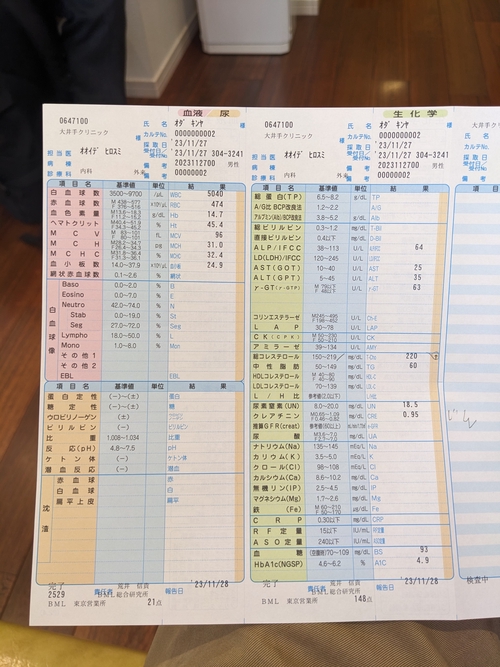 血液 尿
0647100
大井手クリニック
氏名 ｵﾀﾞ ｷﾝﾔ 様
カルテNo. 0000000002
採取日 '23/11/27
担当医 ｵｵｲﾃﾞ ﾋﾛﾐ 様
受付日/受付No. '23/11/27 304-3241
病棟 備考 2023112700 男性
診療科 内科 外来 備考 0000000002
項目名 基準値 単位 結果
白血球数 3500~9700 /μL WBC 5040
赤血球数 M 438~577 F 376~516 ×10⁴/μL RBC 474
血色素量 M13.6~18.3 g/dL Hb 14.7
ヘマトクリット % Ht 45.4
MCV fL MCV 96
MCH pg MCH 31.0
MCHC % MCHC 32.4
血小板数 14.0~37.9 ×10⁴/μL 24.9
網状赤血球数 0.1~2.6 % 網状
白血球像
Baso 0.0~2.0 % B
Eosino 0.0~7.0 % E
Neutro 42.0~74.0 % N
Stab 0.0~19.0 % St
Seg 27.0~72.0 % Seg
Lympho 18.0~50.0 % L
Mono 1.0~8.0 % Mon
その他1
その他2
EBL EBL
項目名 基準値 単位 結果
蛋白定性 (-)~(±) 蛋白
糖定性 (-)~(±) 糖
ウロビリノーゲン (±)
ビリルビン (-) ビリルビン
比重 1.008~1.034 比重
反応(pH) 4.8~7.5 pH
ケトン体 (-) ケトン
潜血反応 (-) 潜血
沈渣
赤血球 赤
白血球 白
扁平上皮 扁平
完了
2529
BML 東京営業所 21点
責任者 BML総合研究所
報告日 '23/11/28
生化学
0647100
大井手クリニック
氏名 ｵﾀﾞ ｷﾝﾔ 様
カルテNo. 0000000002
採取日 '23/11/27
担当医 ｵｵｲﾃﾞ ﾋﾛﾐ 様
受付日/受付No. '23/11/27 304-3241
病棟 備考 2023112700 男性
診療科 内科 外来 備考 0000000002
項目名 基準値 単位 結果
総蛋白(TP) 6.5~8.2 g/dL TP
A/G比 BCP改良法 1.2~2.2 A/G
アルブミン(Alb)BCP改良法 3.8~5.2 g/dL Alb
総ビリルビン 0.3~1.2 mg/dL T-Bil
直接ビリルビン 0.4以下 mg/dL D-Bil
ALP/IFCC 38~113 U/L 64
LD(LDH)/IFCC 120~245 U/L
AST(GOT) 10~40 U/L AST 25
ALT(GPT) 5~45 U/L ALT 35
γ-GT(γ-GTP) M 79以下 F 48以下 U/L γ-GT 63
コリンエステラーゼ U/L Ch-E
LAP 30~78 U/L LAP
CK(CPK) U/L CK
アミラーゼ 39~134 U/L AMY
総コレステロール 150~219 mg/dL 220
中性脂肪 50~149 mg/dL TG 60
HDLコレステロール mg/dL
LDLコレステロール 70~139 mg/dL
L/H比 参考値(2.0以下)
尿素窒素(UN) 8.0~20.0 mg/dL UN 18.5
クレアチニン mg/dL CRE 0.95
推算GFR(creat) 参考値(60以上)
尿酸 mg/dL UA
ナトリウム(Na) 135~145 mEq/L Na
カリウム(K) 3.5~5.0 mEq/L K
クロール(Cl) 98~108 mEq/L Cl
カルシウム(Ca) 8.6~10.2 mg/dL Ca
無機リン(IP) 2.5~4.5 mg/dL IP
マグネシウム(Mg) 1.7~2.6 mg/dL Mg
鉄(Fe) M 60~210 F 50~170 μg/dL Fe
CRP 0.30以下 mg/dL CRP
RF定量 15以下 IU/mL RF
ASO定量 240以下 IU/mL
血糖 (空腹時)70~109 mg/dL BS 93
HbA1c(NGSP) 4.6~6.2 % A1C 4.9
完了
BML 東京営業所 148点
責任者 BML総合研究所
報告日 '23/11/28
項目名
検査中